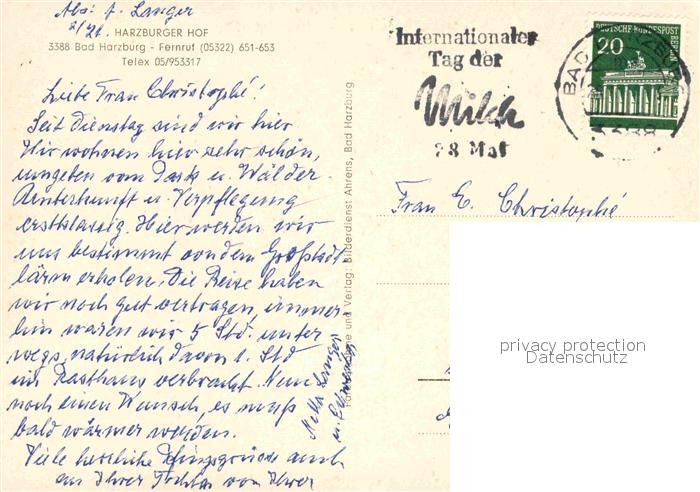 Abs: A. Langer
z/Zt. HARZBURGER HOF
3388 Bad Harzburg - Fernruf (05322) 651-653
Telex 05/953317
Liebe Frau Christophé!
Seit Dienstag sind wir hier
Wir wohnen hier sehr schön,
umgeben vom Park u. Wälder.
Unterkunft u. Verpflegung
erstklassig. Hier werden wir
uns bestimmt von dem Großstadt
lärm erholen. Die Reise haben
wir noch gut vertragen, immer
hin waren wir 5 Std. unter
wegs, natürlich davon 1. Std
im Rasthaus verbracht. Nun
noch einen Wunsch, es muß
bald wärmer werden.
Viele herzliche Pfingstgrüsse auch
an Ihrer Tochter von Ihrer
Langer
u.
und Verlag: Bilderdienst Ahrens, Bad Harzburg
Internationaler
Tag der
Milch
28 Mai
DEUTSCHE BUNDESPOST
BERLIN
20
BAD
Frau E. Christophé
privacy protection
Datenschutz